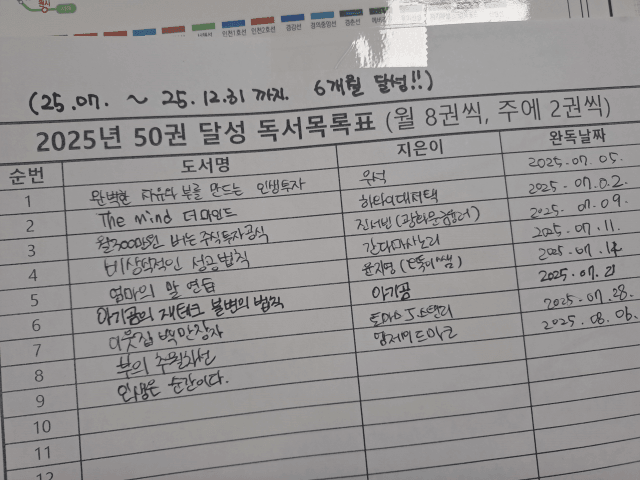 인천1호선 인천2호선 경강선 경의중앙선 경춘선
(25.07. ~ 25.12.31 까지. 6개월 달성!!)
2025년 50권 달성 독서목록표 (월 8권씩, 주에 2권씩)
순번 도서명 지은이 완독날짜
1 완벽한 자유와 부를 만드는 인생투자 우석 2025.07.05.
2 The mind 더 마인드 하와이대저택 2025.07.02.
3 월300만원 버는 주식투자공식 진서빈 2025.07.09.
4 비상식적인 성공법칙 간다 마사노리 2025.07.11.
5 엄마의 말 연습 윤지영 2025.07.14
6 아기곰의 재테크 불변의 법칙 아기곰 2025.07.21
7 이웃집 백만장자 토마스 J 스탠리 2025.07.28.
8 부의 추월차선 엠제이드마코 2025.08.06.
9 인생은 순간이다.
10
11
12